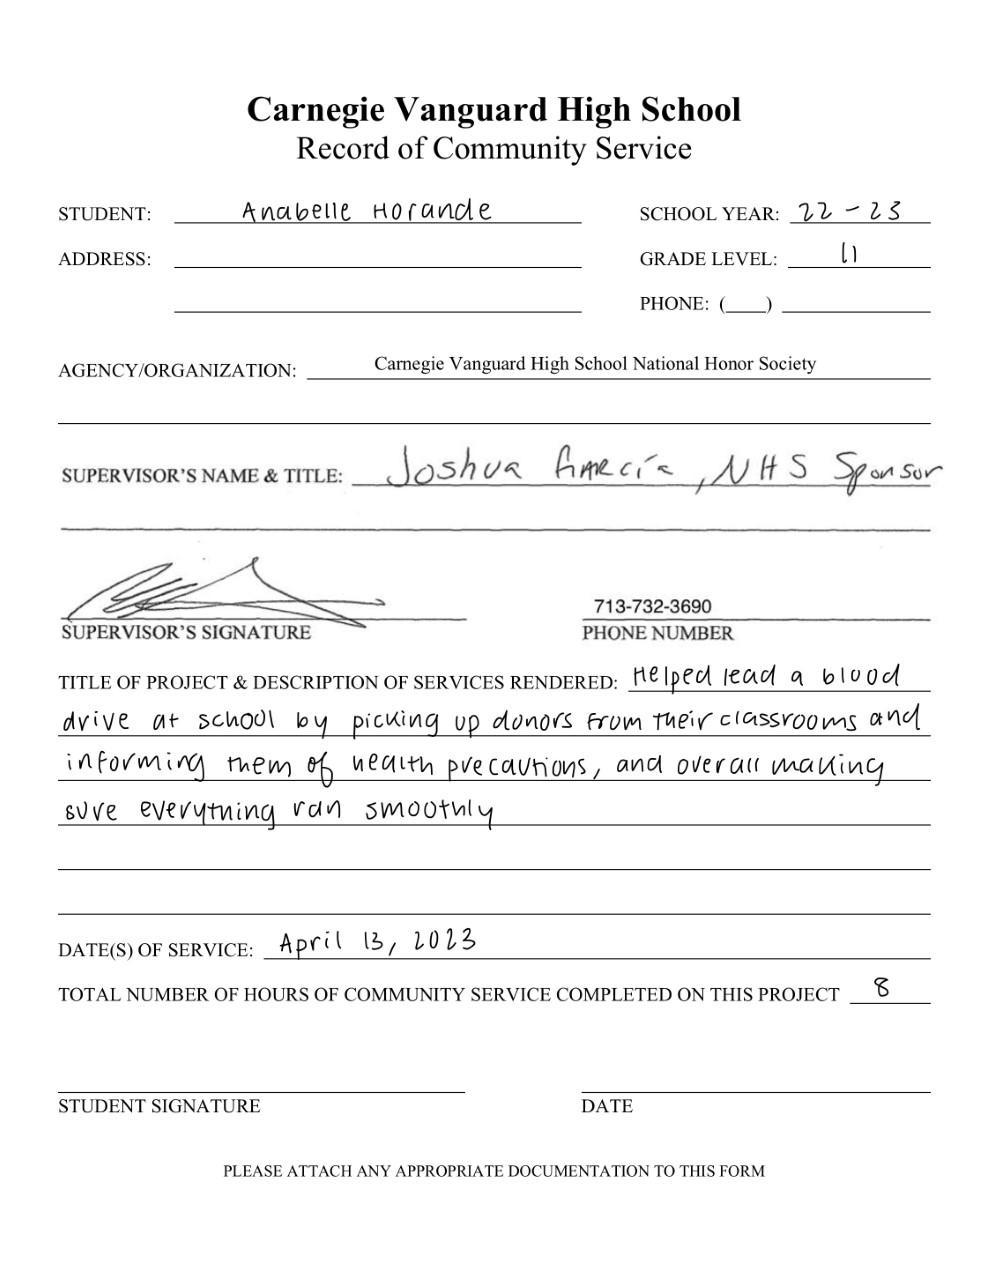 Carnegie Vanguard High School
Record of Community Service
STUDENT: Anabelle Horande SCHOOL YEAR: 22 - 23
ADDRESS: GRADE LEVEL: 11
PHONE: ( )
AGENCY/ORGANIZATION: Carnegie Vanguard High School National Honor Society
SUPERVISOR'S NAME & TITLE: Joshua Garcia, NHS Sponsor
713-732-3690
SUPERVISOR'S SIGNATURE PHONE NUMBER
TITLE OF PROJECT & DESCRIPTION OF SERVICES RENDERED: Helped lead a blood
drive at school by picking up donors from their classrooms and
informing them of health precautions, and overall making
sure everything ran smoothly
DATE(S) OF SERVICE: April 13, 2023
TOTAL NUMBER OF HOURS OF COMMUNITY SERVICE COMPLETED ON THIS PROJECT 8
STUDENT SIGNATURE DATE
PLEASE ATTACH ANY APPROPRIATE DOCUMENTATION TO THIS FORM